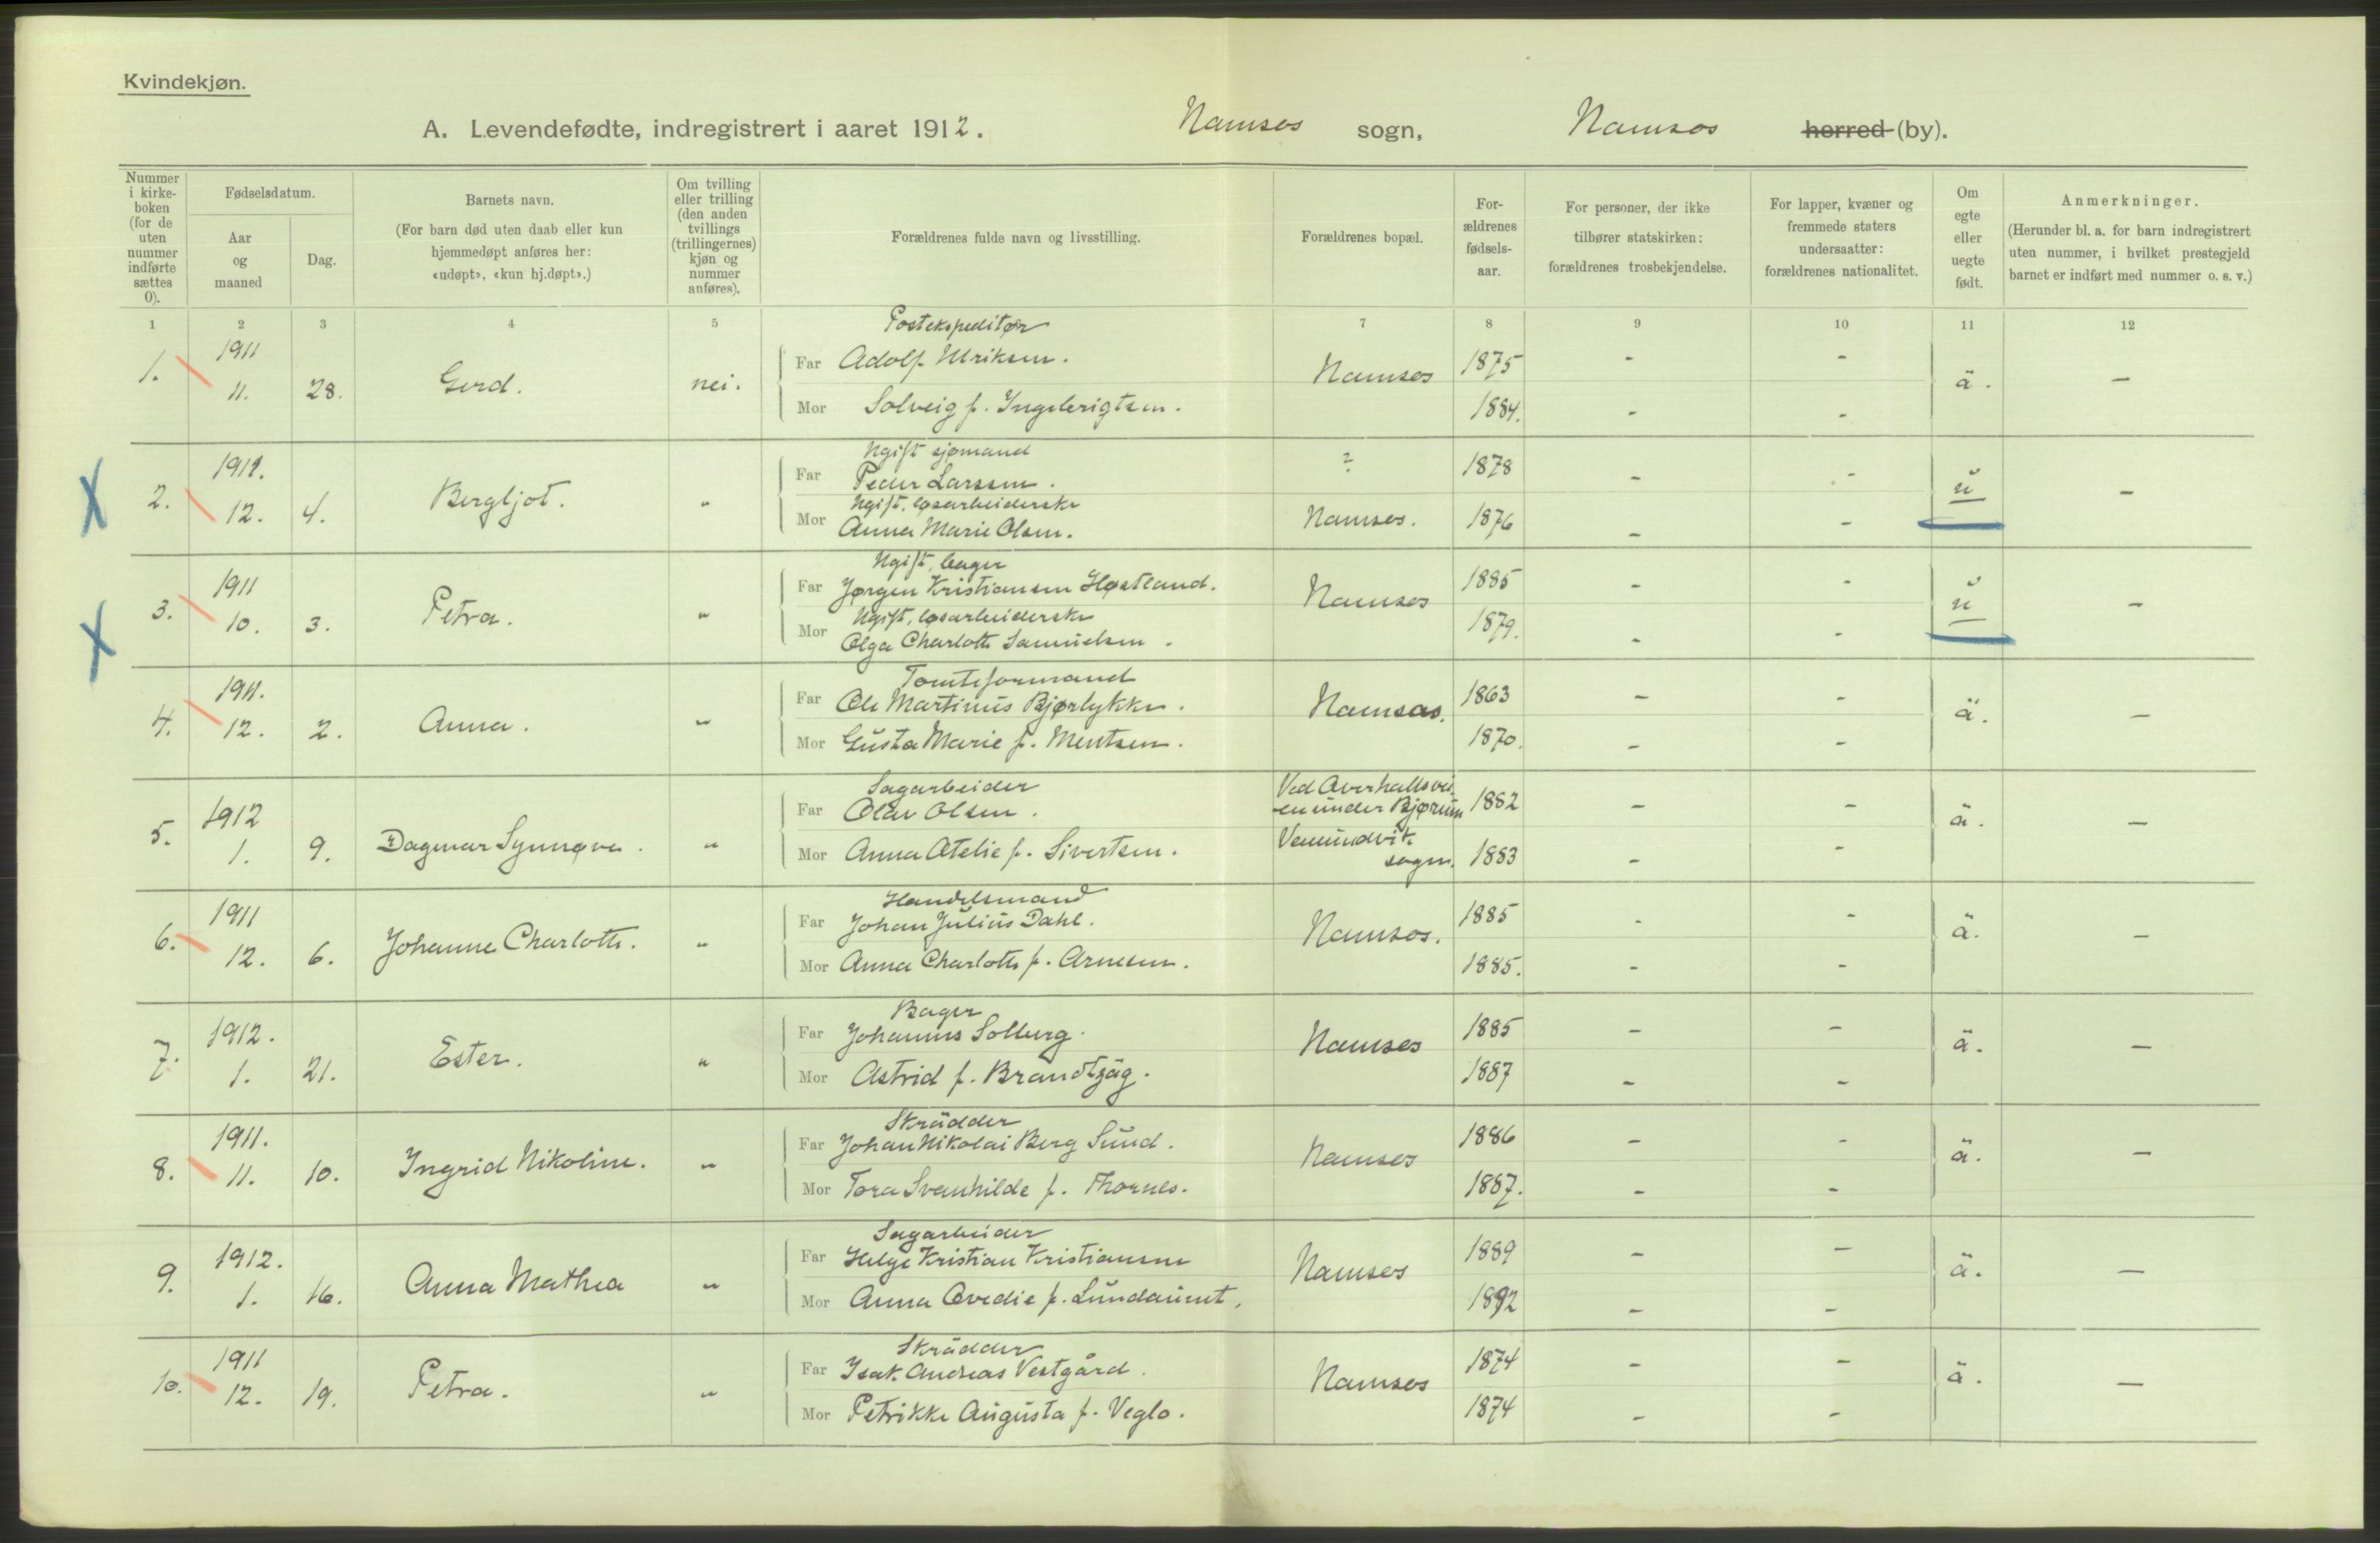 Kvindekjøn.
A. Levendefødte, indregistrert i aaret 1912. Namsos sogn, Namsos herred (by).
Nummer i kirke-boken (for de uten nummer indførte sættes 0).
Fødselsdatum.
Aar og maaned
Dag.
Barnets navn.
(For barn død uten daab eller kun hjemmedøpt anføres her: «udøpt», «kun hj.døpt».)
Om tvilling eller trilling (den anden tvillings (trillingernes) kjøn og nummer anføres).
Forældrenes fulde navn og livsstilling.
Forældrenes bopæl.
For-ældrenes fødsels-aar.
For personer, der ikke tilhører statskirken: forældrenes trosbekjendelse.
For lapper, kvæner og fremmede staters undersaatter: forældrenes nationalitet.
Om egte eller uegte født.
Anmerkninger.
(Herunder bl. a. for barn indregistrert uten nummer, i hvilket prestegjeld barnet er indført med nummer o. s. v.)
1 2 3 4 5 7 8 9 10 11 12
Postekspeditør
1. 1911 11. 28. Gerd. nei. Far Adolf Ulriksen. Namsos 1875 - - ä. -
Mor Solveig f. Ingebrigtsen. 1884. - -
Ugift sjømand
2. 1911. 12. 4. Bergljot. " Far Peder Larssen. ? 1878 - - u -
Ugift, løsarbeiderske
Mor Anna Marie Olsen. Namsos. 1876 - -
Ugift, bager
3. 1911 10. 3. Petra. " Far Jørgen Kristiansen Høstland. Namsos 1885 - - u -
Ugift, løsarbeiderske
Mor Olga Charlotte Samuelsen. 1879. - -
Tomteformand
4. 1911. 12. 2. Anna. " Far Ole Martinus Bjørlykke. Namsos. 1863 - - ä. -
Mor Gusta Marie f. Mentsen. 1870. - -
Sagarbeider
5. 1912 1. 9. Dagmar Synnøve. " Far Olav Olsen. Ved Overhallsvei-en under Bjørum 1882 - - ä. -
Mor Anna Otelie f. Sivertsen. Vemundvik sogn. 1883 - -
Handelsmand
6. 1911 12. 6. Johanne Charlotte. " Far Johan Julius Dahl. Namsos. 1885 - - ä. -
Mor Anna Charlotte f. Arnesen. 1885. - -
Bager
7. 1912. 1. 21. Ester. " Far Johannes Solberg. Namsos 1885 - - ä. -
Mor Astrid f. Brandtzäg. 1887 - -
Skrädder
8. 1911. 11. 10. Ingrid Nikoline. " Far Johan Nikolai Berg Sund. Namsos 1886 - - ä. -
Mor Tora Svanhilde f. Thornes. 1887. - -
Sagarbeider
9. 1912. 1. 16. Anna Mathea " Far Helge Kristian Kristiansen Namsos 1889 - - ä. -
Mor Anna Ovedie f. 1892 - -
Skrädder
10. 1911 12. 19. Petra. " Far Isak Andreas Vestgård. Namsos 1874 - - ä. -
Mor Petrikke Augusta f. Veglo. 1874 - -